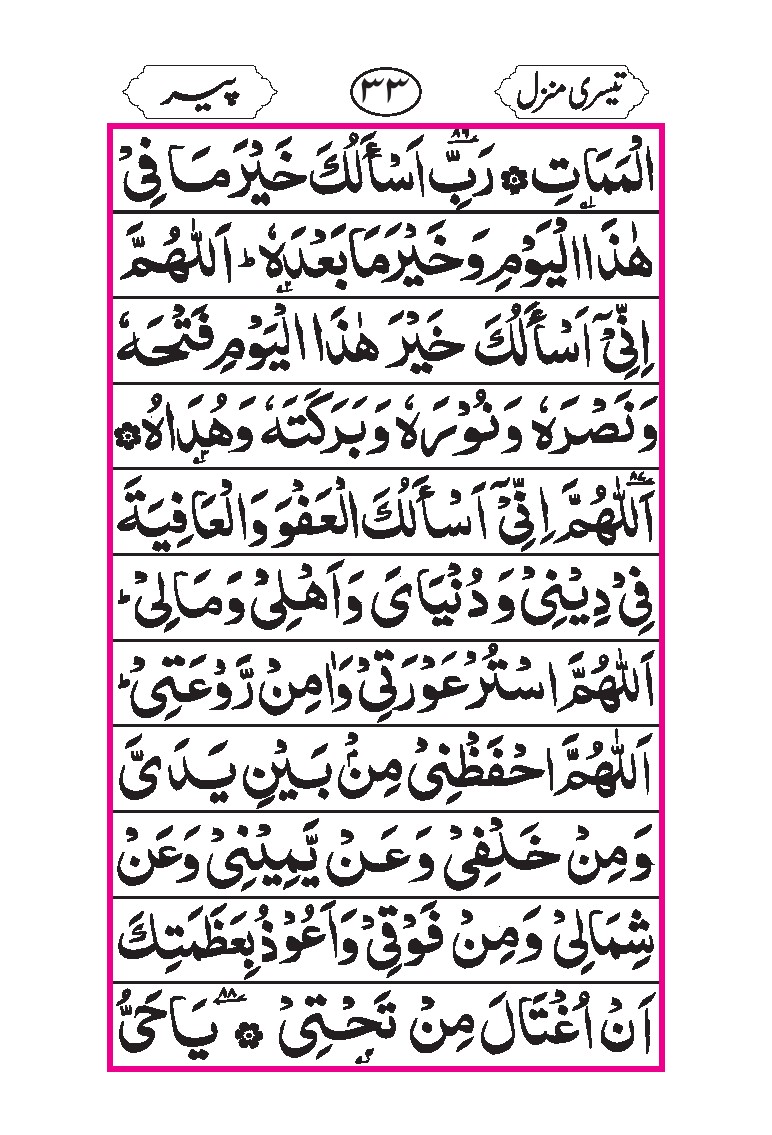 تیسری منزل
۳۳
پیر
الْمَمَاتِ ۞ رَبِّ اَسْأَلُكَ خَيْرَ مَا فِيْ
هٰذَا الْيَوْمِ وَخَيْرَ مَا بَعْدَهٗ ؕ اَللّٰهُمَّ
اِنِّيْٓ اَسْأَلُكَ خَيْرَ هٰذَا الْيَوْمِ فَتْحَهٗ
وَنَصْرَهٗ وَنُوْرَهٗ وَبَرَكَتَهٗ وَهُدَاهُ ۞
اَللّٰهُمَّ اِنِّيْٓ اَسْأَلُكَ الْعَفْوَ وَالْعَافِيَةَ
فِيْ دِيْنِيْ وَدُنْيَايَ وَاَهْلِيْ وَمَالِيْ ؕ
اَللّٰهُمَّ اسْتُرْ عَوْرَتِيْ وَاٰمِنْ رَّوْعَتِيْ ؕ
اَللّٰهُمَّ احْفَظْنِيْ مِنْۢ بَيْنِ يَدَيَّ
وَمِنْ خَلْفِيْ وَعَنْ يَّمِيْنِيْ وَعَنْ
شِمَالِيْ وَمِنْ فَوْقِيْ وَاَعُوْذُ بِعَظَمَتِكَ
اَنْ اُغْتَالَ مِنْ تَحْتِيْ ۞ يَا حَيُّ